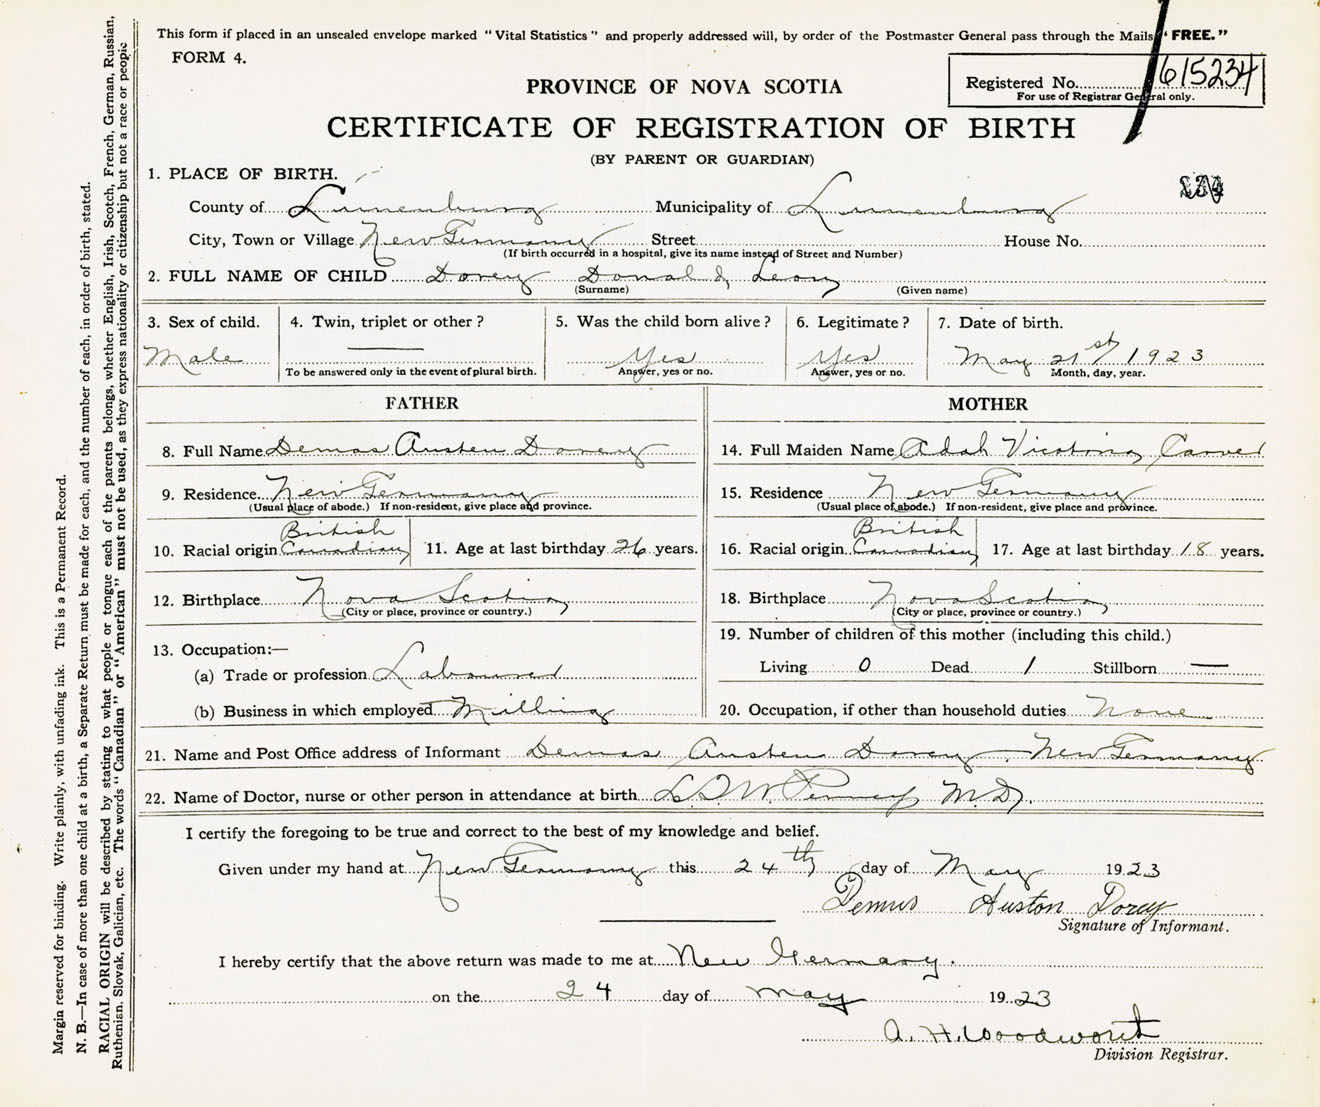 This form if placed in an unsealed envelope marked "Vital Statistics" and properly addressed will, by order of the Postmaster General pass through the Mails "FREE."
FORM 4.
Registered No. 615234
For use of Registrar General only.
PROVINCE OF NOVA SCOTIA
CERTIFICATE OF REGISTRATION OF BIRTH
(BY PARENT OR GUARDIAN)
1. PLACE OF BIRTH.
County of Lunenburg Municipality of Lunenburg
City, Town or Village New Germany Street House No.
(If birth occurred in a hospital, give its name instead of Street and Number)
2. FULL NAME OF CHILD Dorey Donald Leon
(Surname) (Given name)
3. Sex of child. 4. Twin, triplet or other? 5. Was the child born alive? 6. Legitimate? 7. Date of birth.
Male — Yes Yes May 21st 1923
To be answered only in the event of plural birth. Answer, yes or no. Answer, yes or no. Month, day, year.
FATHER
8. Full Name Demas Austen Dorey
9. Residence New Germany
(Usual place of abode.) If non-resident, give place and province.
British
10. Racial origin Canadian 11. Age at last birthday 26 years.
12. Birthplace Nova Scotia
(City or place, province or country.)
13. Occupation:—
(a) Trade or profession Labourer
(b) Business in which employed Milling
MOTHER
14. Full Maiden Name Adah Victoria Carver
15. Residence New Germany
(Usual place of abode.) If non-resident, give place and province.
British
16. Racial origin Canadian 17. Age at last birthday 18 years.
18. Birthplace Nova Scotia
(City or place, province or country.)
19. Number of children of this mother (including this child.)
Living 0 Dead 1 Stillborn —
20. Occupation, if other than household duties None
21. Name and Post Office address of Informant Demas Austen Dorey, New Germany
22. Name of Doctor, nurse or other person in attendance at birth M.D.
I certify the foregoing to be true and correct to the best of my knowledge and belief.
Given under my hand at New Germany this 24th day of May 1923
Demus Auston Dorey
Signature of Informant.
I hereby certify that the above return was made to me at New Germany.
on the 24 day of May 1923
A. H. Woodworth
Division Registrar.
Margin reserved for binding. Write plainly, with unfading ink. This is a Permanent Record.
N. B.—In case of more than one child at a birth, a Separate Return must be made for each, and the number of each, in order of birth, stated.
RACIAL ORIGIN will be described by stating to what people or tongue each of the parents belongs, whether English, Irish, Scotch, French, German, Russian,
Ruthenian, Slovak, Galician, etc. The words "Canadian" or "American" must not be used, as they express nationality or citizenship but not a race or people